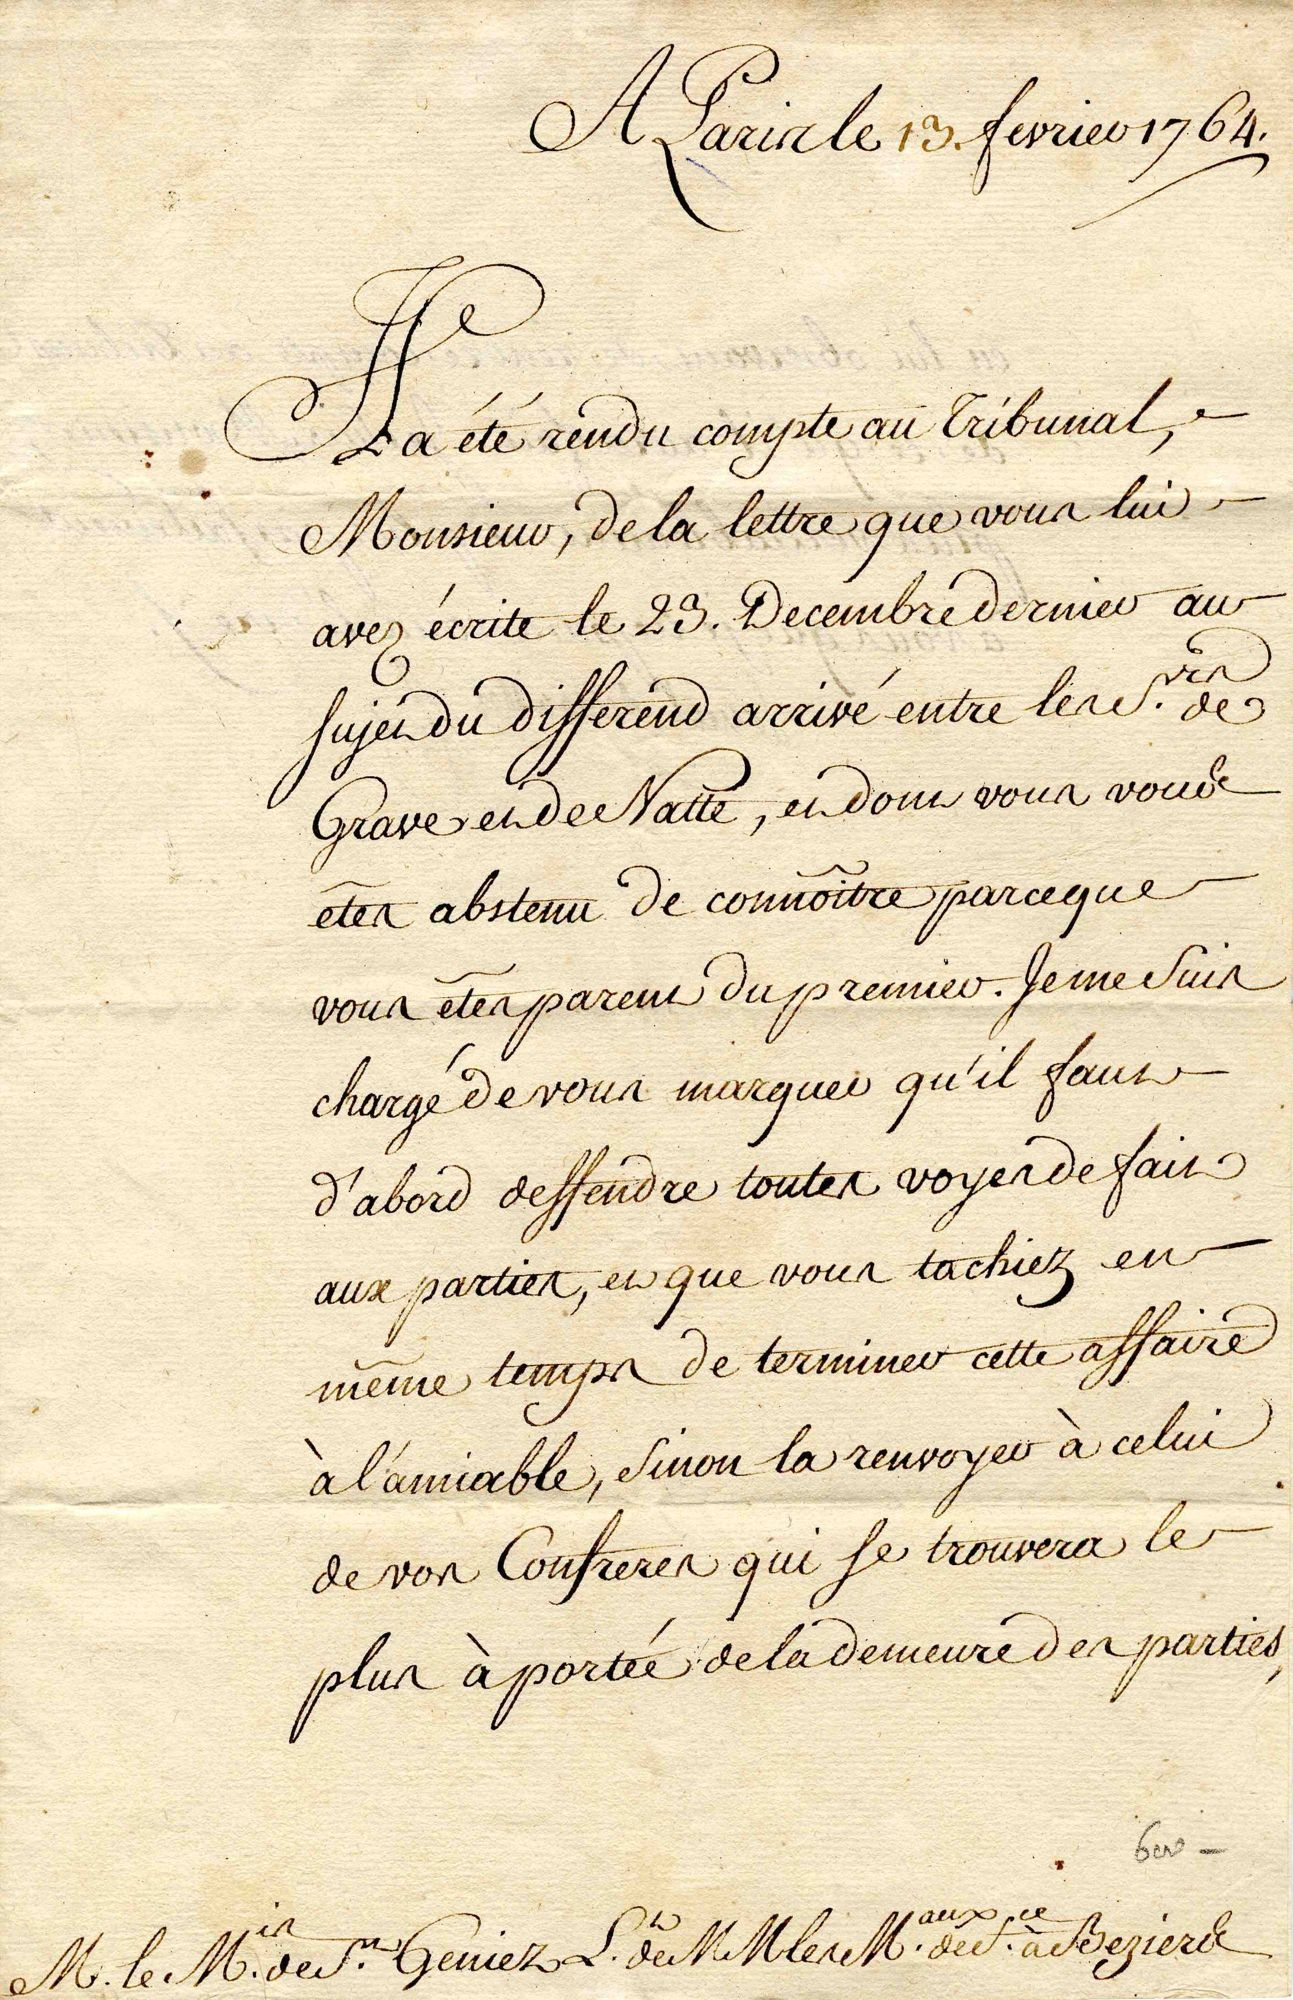 A Paris le 13. fevrier 1764.
Il a été rendu compte au Tribunal,
Monsieur, de la lettre que vous lui
avez écrite le 23. Decembre dernier au
sujet du differend arrivé entre les S.rs de
Grave et de Natte, et dont vous vous
êtes abstenu de connoître parceque
vous êtes parent du premier. Je me suis
chargé de vous marquer qu'il faut
d'abord deffendre toutes voyes de fait
aux parties, et que vous tachiez en
même temps de terminer cette affaire
à l'amiable, sinon la renvoyer à celui
de vos Confreres qui se trouvera le
plus à portée de la demeure des parties,
M. le M.is de S.t Geniez L.t de MM les M.aux de F.ce à Beziers